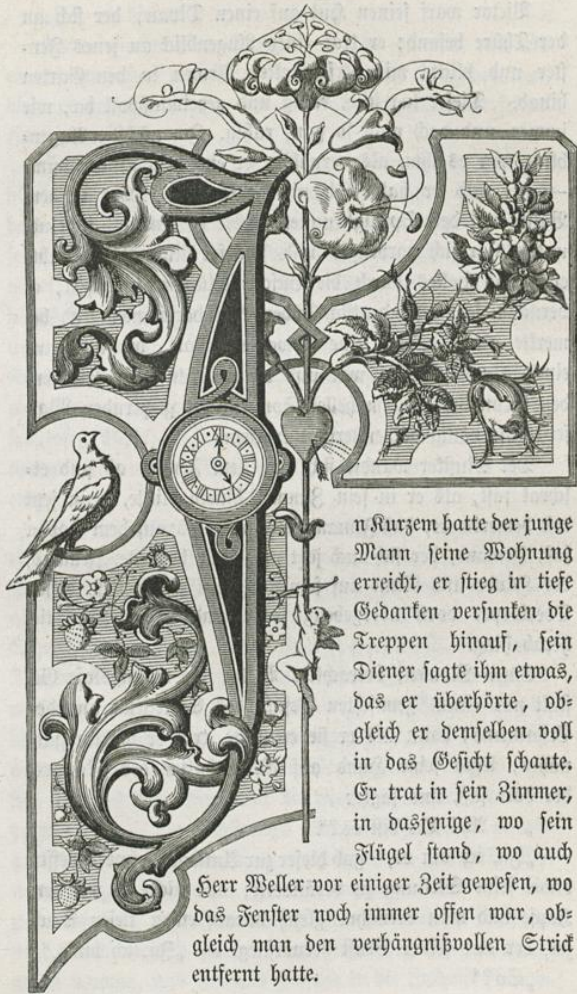 In Kurzem hatte der junge
Mann seine Wohnung
erreicht, er stieg in tiefe
Gedanken versunken die
Treppen hinauf, sein
Diener sagte ihm etwas,
das er überhörte, ob-
gleich er demselben voll
in das Gesicht schaute.
Er trat in sein Zimmer,
in dasjenige, wo sein
Flügel stand, wo auch
Herr Weller vor einiger Zeit gewesen, wo
das Fenster noch immer offen war, ob-
gleich man den verhängnißvollen Strick
entfernt hatte.